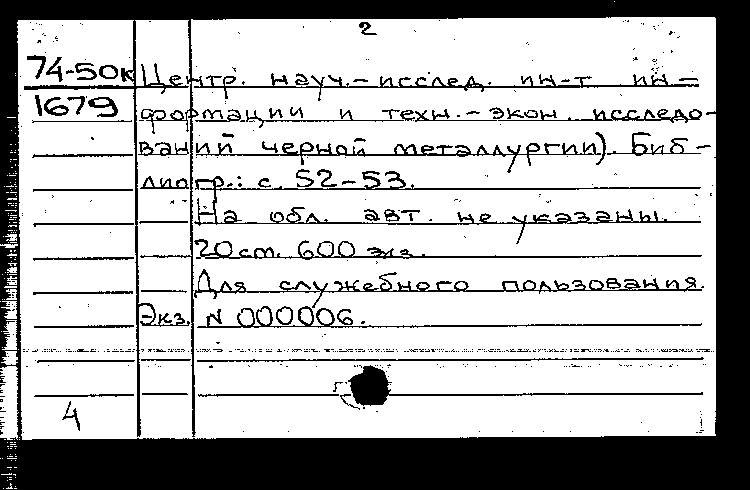 2
74-50к Центр. науч.-исслед. ин-т ин-
1679 формации и техн.-экон. исследо-
ваний черной металлургии). Биб-
лиогр.: с. 52-53.
На обл. авт. не указаны.
20 см. 600 экз.
Для служебного пользования.
Экз. N 000006.
4